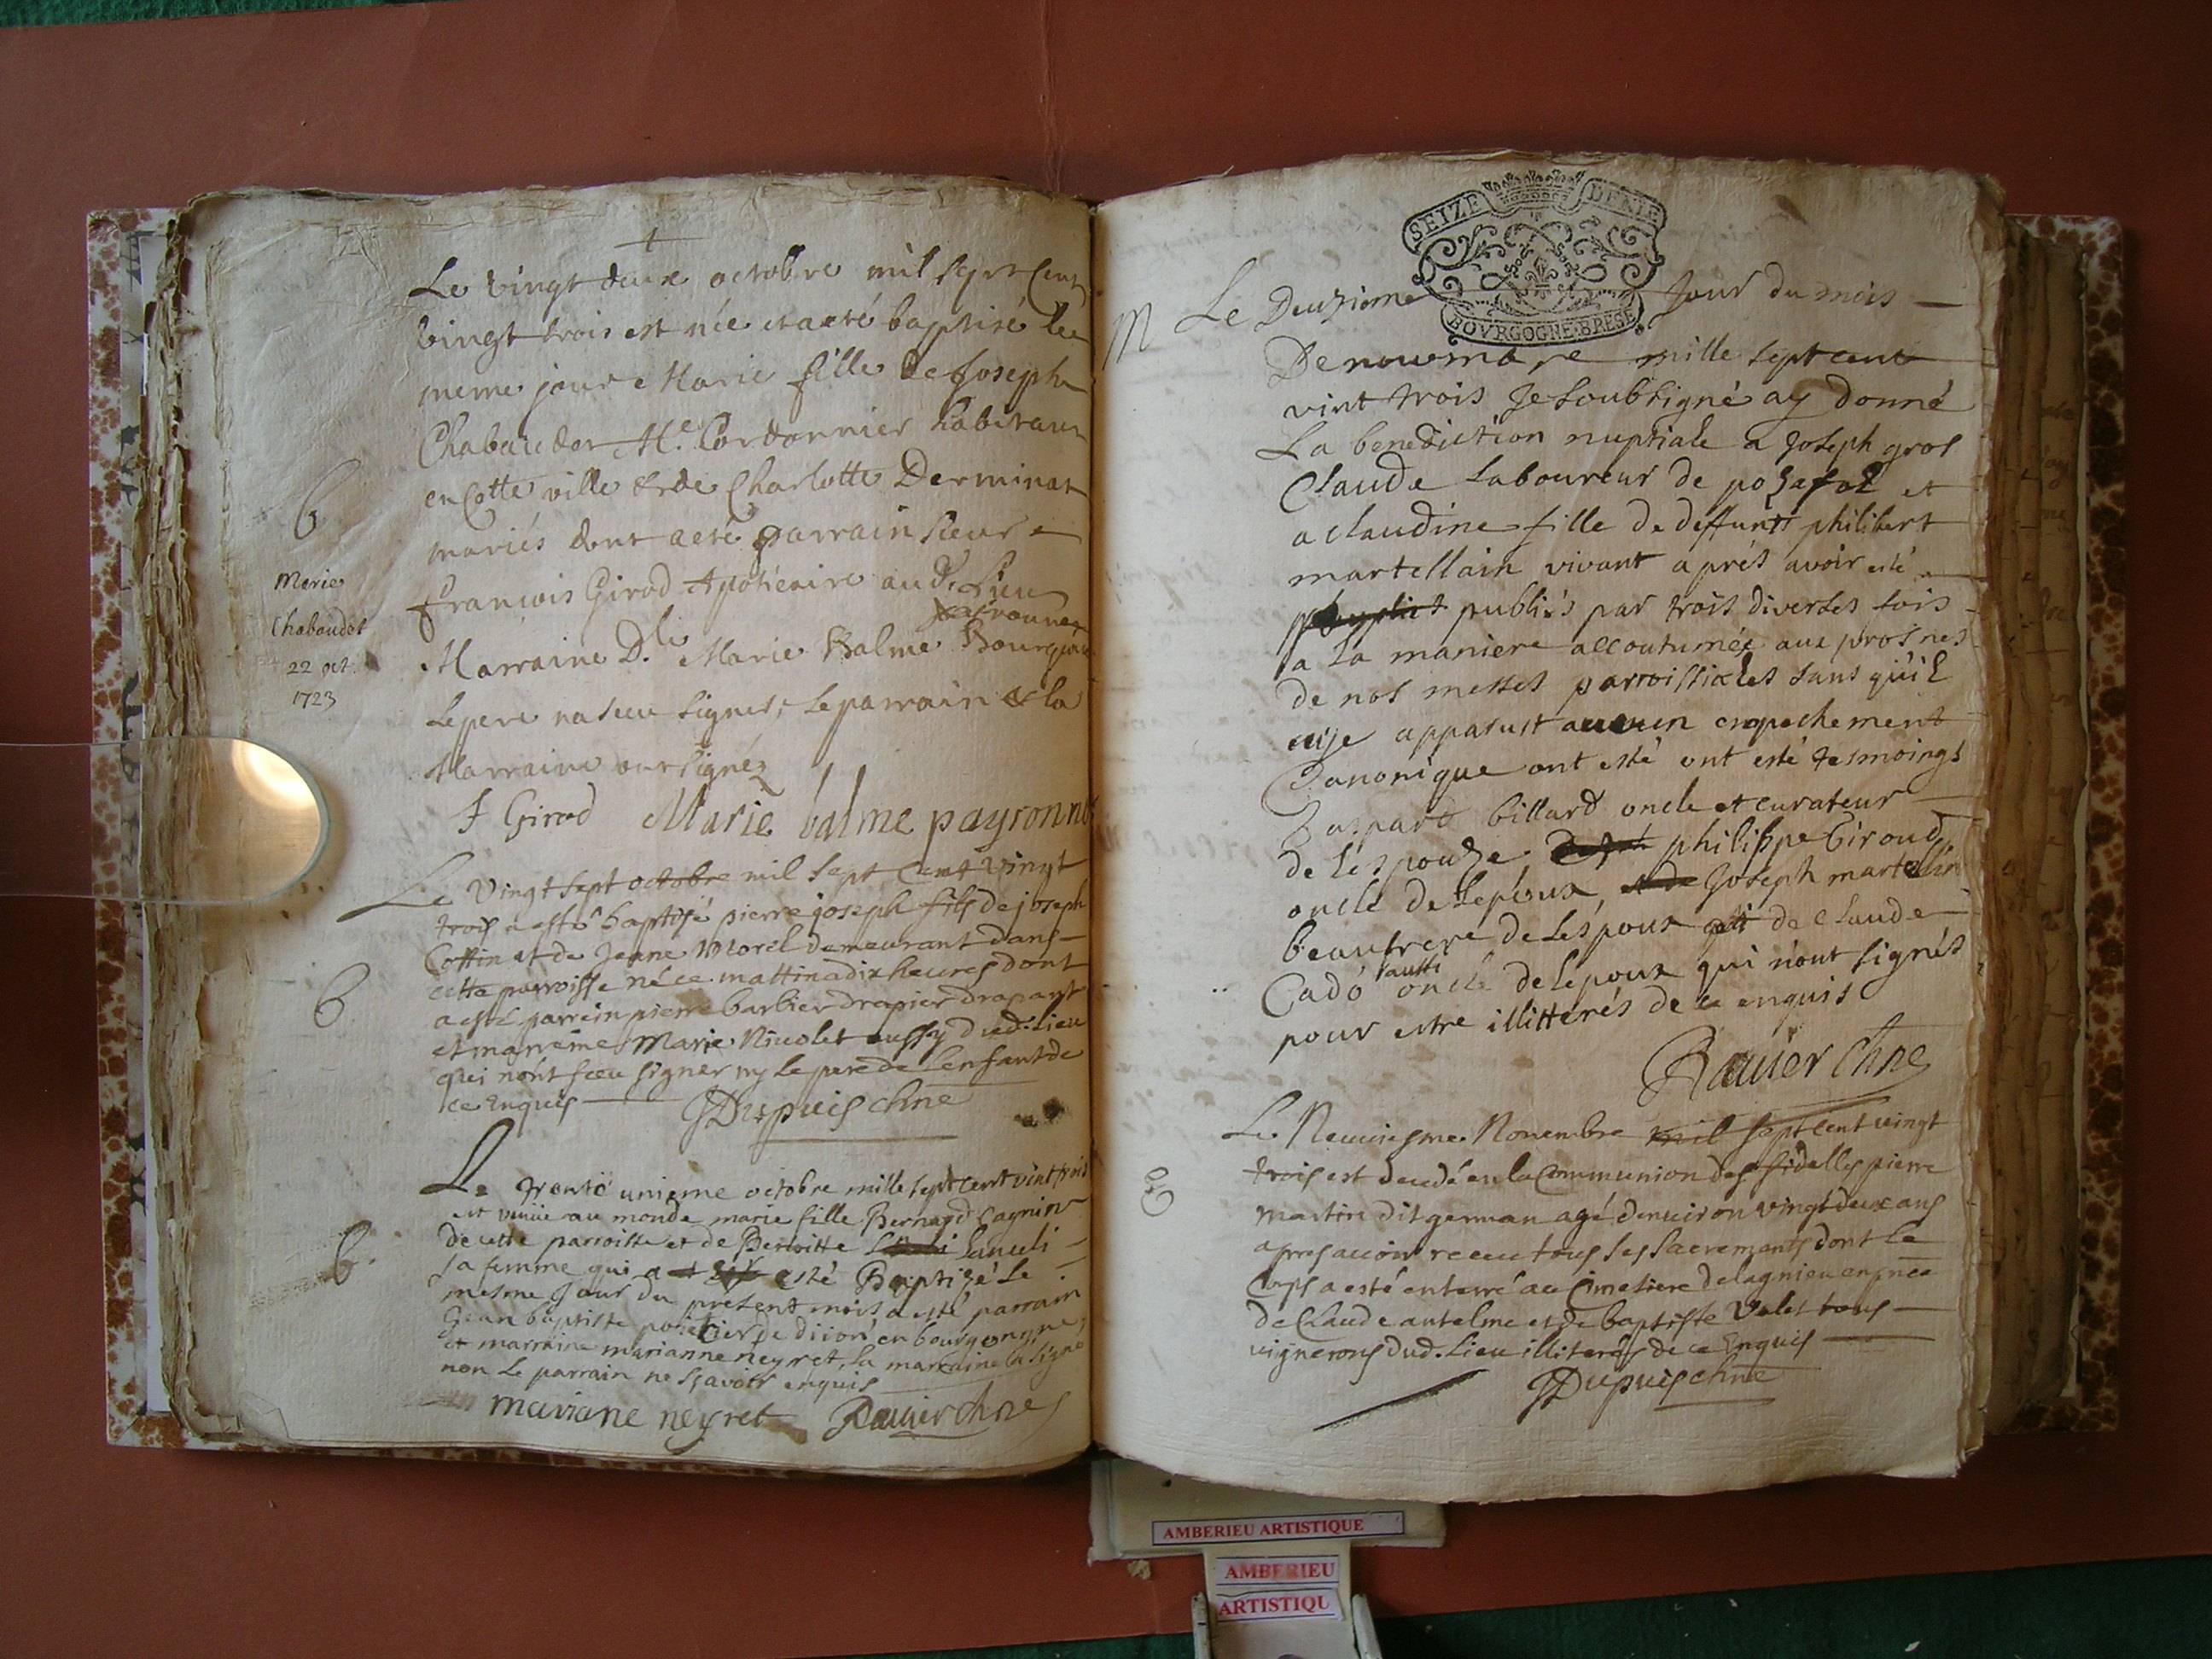 Le vingt deux octobre mil sept cent
vingt trois est née et a eté baptisé le
meme jour Marie fille de Joseph
Chabaudot Me. Cordonnier habitant
en Cette ville et de Charlotte Derminat
mariés dont a eté parrain sieur
francois Girod Apoticaire aud. Lieu
Marraine D.lle Marie Balme Bourgeoise
Le pere na sceu signer, le parrain & la
Marraine ont signéz
F Girod Marie balme payronnet
B
Marie
Chaboudot
22 oct.
1723
Le Vingt sept octobre mil sept Cent Vingt
trois a esté baptisé pierre joseph fils de joseph
Cottin et de Jeanne Morel demeurant dans
cette parroisse né ce mattin a dix heures dont
a esté parrein pierre barbier drapier drapant
et marreine Marie Nicolet aussy dud. Lieu
qui n'ont sceu signer ny le pere de Lenfant de
ce Enquis
JDupuis chne
B
Le trente unieme octobre mille sept cent vint trois
est venüe au monde marie fille Bernard Cagnin
de cette parroisse et de Benoitte Lanceli
sa femme qui a esté Baptizé Le
mesme Jour du present mois a esté parrain
Jean baptiste potier de diion en bourgongne
et marraine marianne neyret, la marraine a signé
non Le parrain ne sçavoir enquis
mariane neyret Rauier chne
b.
SEIZE DENIE
BOVRGOGNE. BRESE
M
Le Deuzieme Jour du mois
De nouembre mille sept cent
vint trois Je soubsigné ay donné
La benediction nuptiale a Joseph gros
Claude laboureur de pozafol et
a claudine fille de deffunts philibert
martellain vivant aprés avoir esté
publiés par trois diverses fois
a la maniere accoutumée aux prosnes
de nos messes parroissiales sans qu'il
aije apparust aucun empechement
Canonique ont esté ont esté tesmoings
Gaspard billard oncle et curateur
de Lespouze, philippe Giroud
oncle de Lepoux, Joseph martellin
beaufrere de Lespoux et de Claude
Cadó aussi oncle de Lepoux qui n'ont signés
pour estre illitterés de ce enquis
Rauier Chne
Le Neuuiesme Nouembre mil sept cent vingt
trois est decedé en la Communion des fidelles pierre
martin dit german agé denuiron vingt deux ans
apres auoir receu tous les sacrements dont le
Corps a esté enterré au Cimetiere de lagnieu en pnce
de Claude antelme et de baptiste Valet tous
vignerons dud. Lieu illiterés de ce Enquis
JDupuis chne
AMBERIEU ARTISTIQUE
AMBERIEU
ARTISTIQU